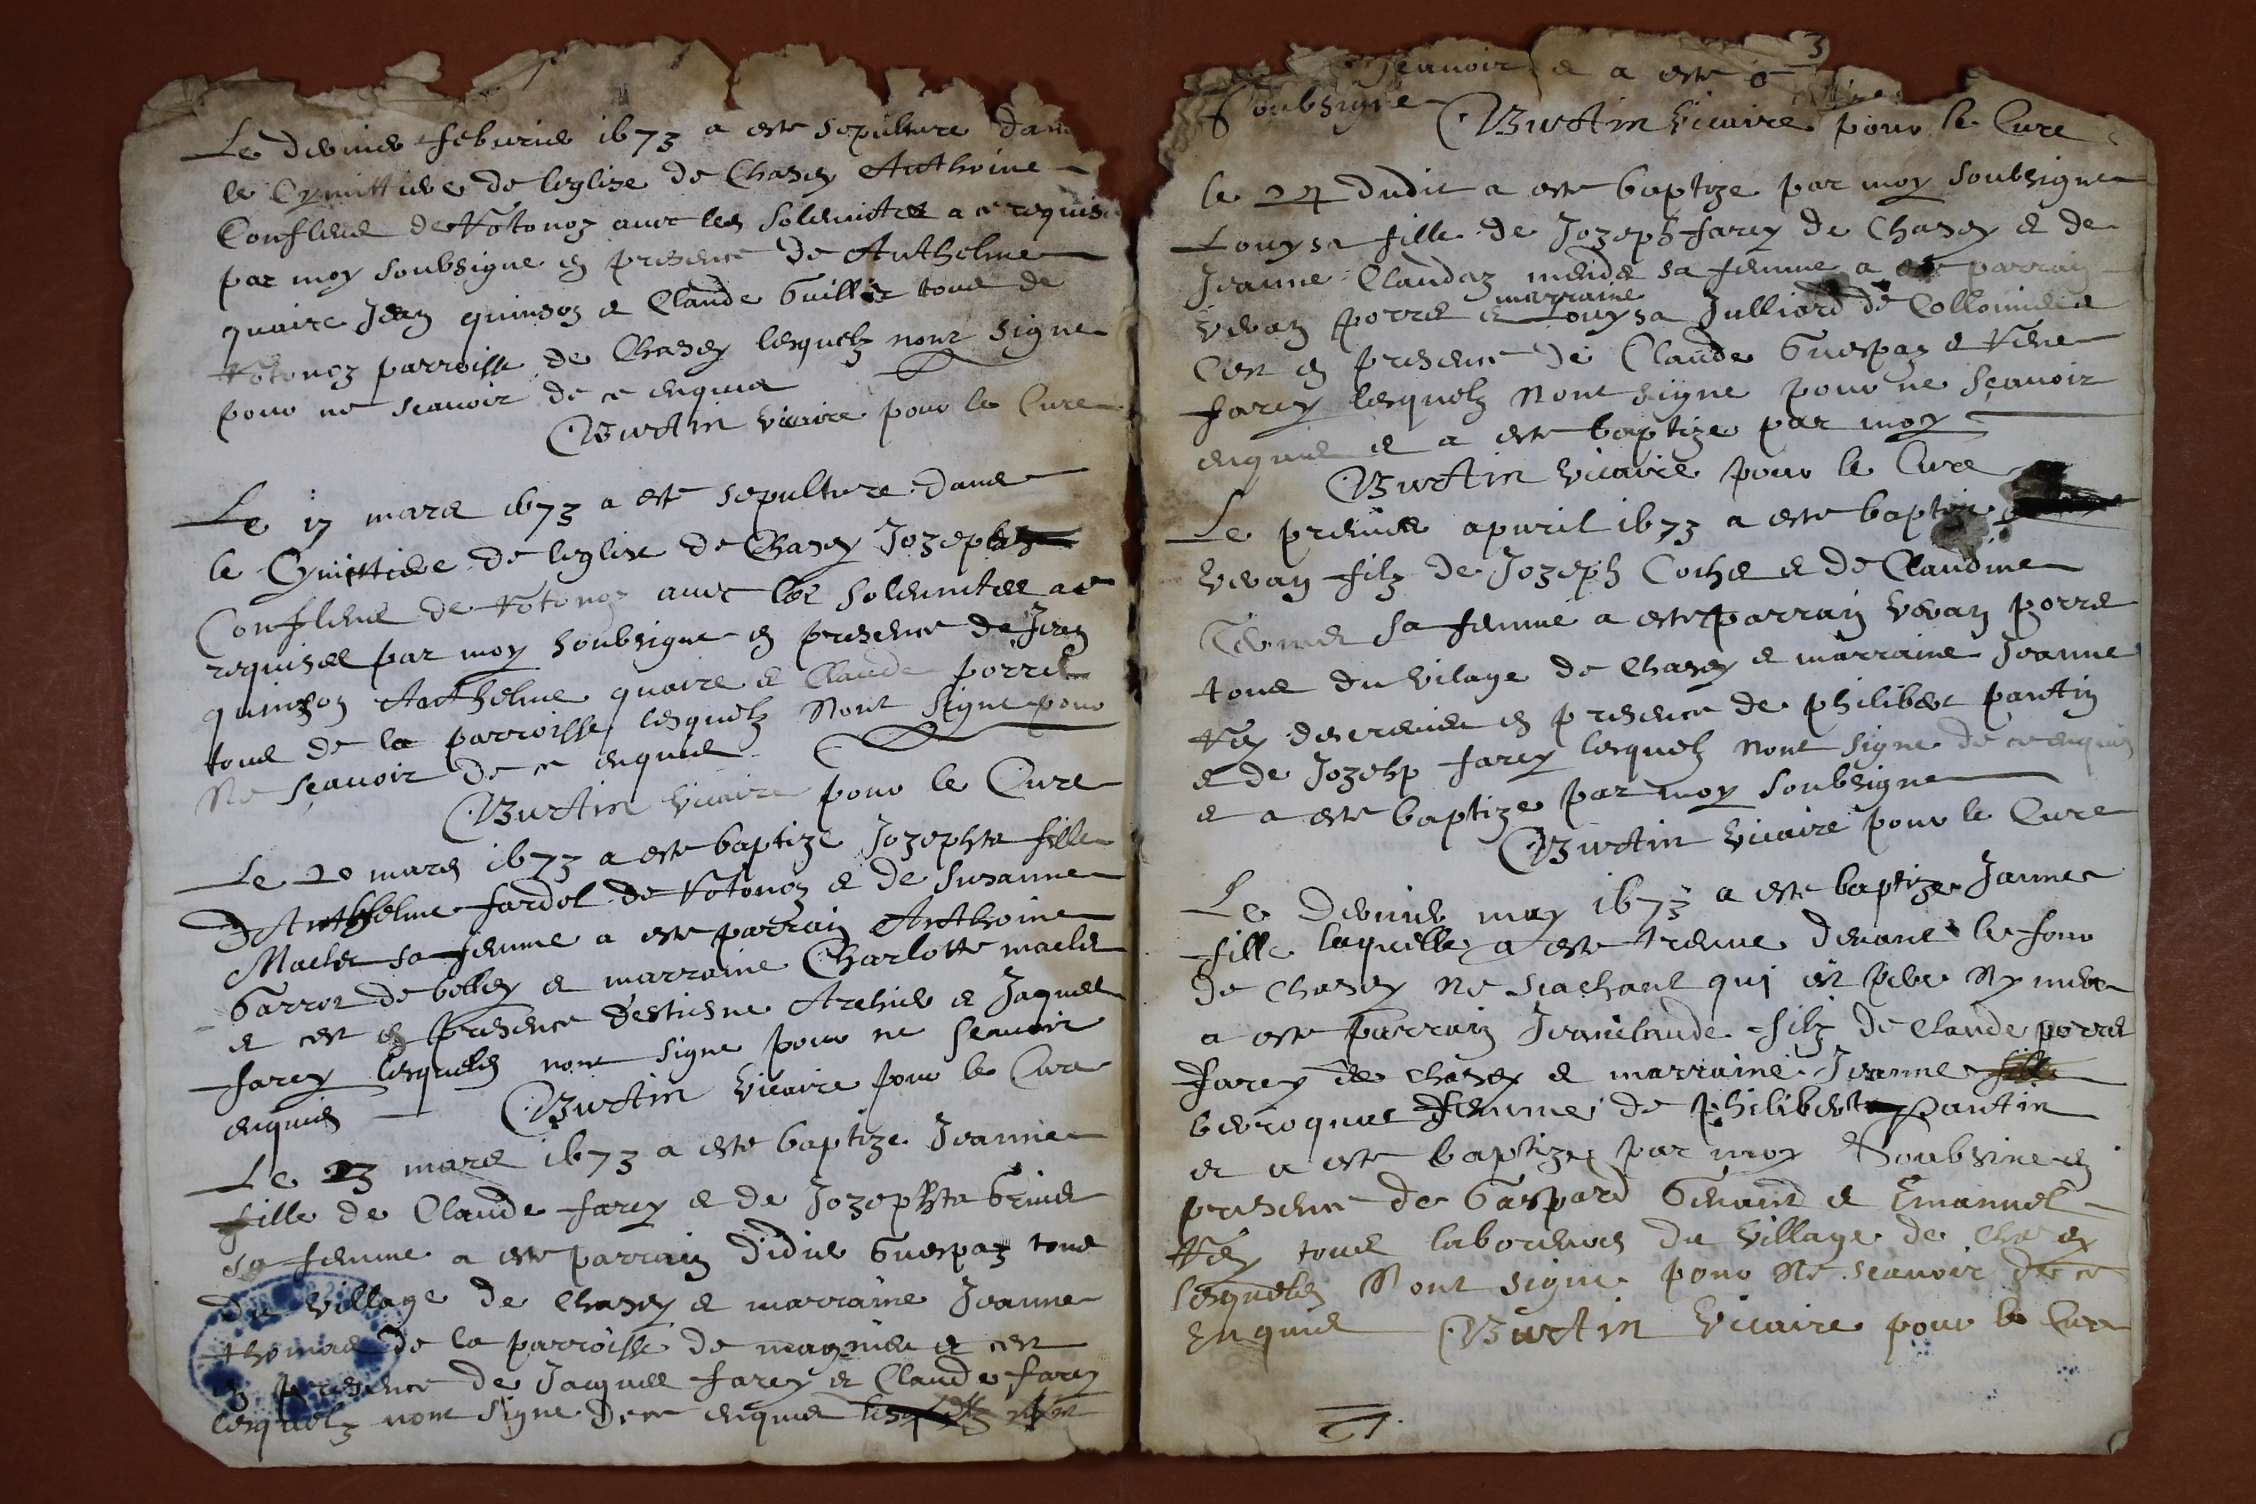 Le dernier feburier 1673 a este sepulture dans
le Cymittiere de leglise de Chasey Anthoine
Conflens de Rotonoz avec les solemnites a ce requises
par moy soubsigne en presence de Anthelme
quaire Jean quinson et Claude Guillet tous de
Rotonoz parroisse de Chasey lesquelz nont signe
pour ne scavoir de ce enquis
Burtin vicaire pour le Cure
Le 17 mars 1673 a este sepulture dans
le Cymittiere de leglise de Chasey Jozeph
Conflens de Rotonoz avec les solemnites a ce
requises par moy soubsigne en presence de Jean
quinson Anthelme quaire et Claude porret
tous de la parroisse lesquelz Nont signe pour
Ne scavoir de ce enquis
Burtin vicaire pour le Cure
Le 20 mars 1673 a este baptize Jozephte fille
DAnthelme fardel de Rotonoz et de Susanne
Maclet sa femme a este parrain Anthoine
Garron de belley et marraine Charlotte maclet
et cest en presence destiesne Archier et Jaques
farcy lesquels nont signe pour ne scavoir
enquis Burtin vicaire pour le Cure
Le 23 mars 1673 a este baptize Jeanne
fille de Claude farcy et de Jozephte Grives
sa femme a este parrain didier Guespaz tous
du village de Chasey et marraine Jeanne
thomas de la parroisse de magnieu et cest
en presence de Jacques farcy et Claude farcy
lesquelz nont signe de ce enquis
3
scavoir et a este
soubsigne Burtin vicaire pour le Cure
le 24 dudit a este baptize par moy soubsigne
Louysa fille de Jozeph farcy de Chasey et de
Jeanne Claudaz sa femme a este parrain
vvan porret et marraine Louysa Julliard de Collomieu
Cest en presence de Claude Guespaz et Rene
farcy lesquelz Nont signe pour ne scavoir
enquis et a este baptize par moy
Burtin vicaire pour le Cure
Le premier apvril 1673 a este baptize
vvan filz de Jozeph Cochet et de Claudine
sa femme a este parrain vvan porret
tous du vilage de Chasey et marraine Jeanne
Rey en presence de philibert pantin
et de Jozehp farcy lesquelz nont signe de ce enquis
et a este baptize par moy soubsigne
Burtin vicaire pour le Cure
Le dernier may 1673 a este baptize Janne
fille laquelle a este treuve devant le four
de Chasey Ne scachant qui est pere Ny mere
a este parrain Jeanclaude filz de Claude porret
farcy de chasey et marraine Jeanne
berroquet femme de philibert pantin
et a este baptize par moy Soubsine en
presence de Gaspard Genand et Emanuel
Rey tous laboreurs du village de Chasey
lesquels Nont signe pour Ne scavoir de ce
Enquis Burtin vicaire pour le Cure